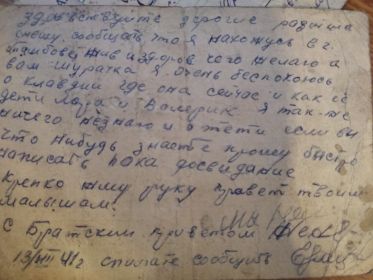 Здравствуйте дорогие
спешу сообщить что я нахожусь в г.
жив и здоров чего желаю
вам Шуратка я очень беспокоюсь
о Клавдии где она сейчас и как её
дети Лора и Валерик я так-же
ничего незнаю и о тети если вы
что нибудь знаете прошу быстро
написать пока досвидание
Крепко жму руку привет твоим
малышам.
С Братским приветом
13/VIII 41г спешите сообщить